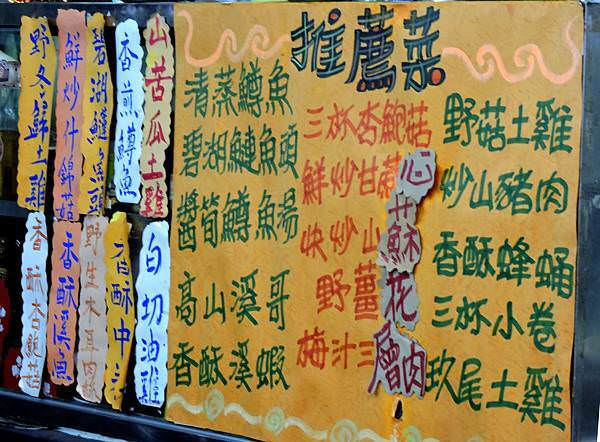 推薦菜
清蒸鱒魚
碧湖鰱魚頭
醬筍鱒魚湯
高山溪哥
香酥溪蝦
三杯杏鮑菇
鮮炒甘蔗心
快炒山蘇花
野薑
梅汁三層肉
野菇土雞
炒山豬肉
香酥蜂蛹
三杯小卷
玖尾土雞
山苦瓜土雞
香煎鱒魚
碧湖鰱
鮮炒什錦菇
土雞
白切油雞
香酥中
野生木耳肉
香酥溪
香酥杏